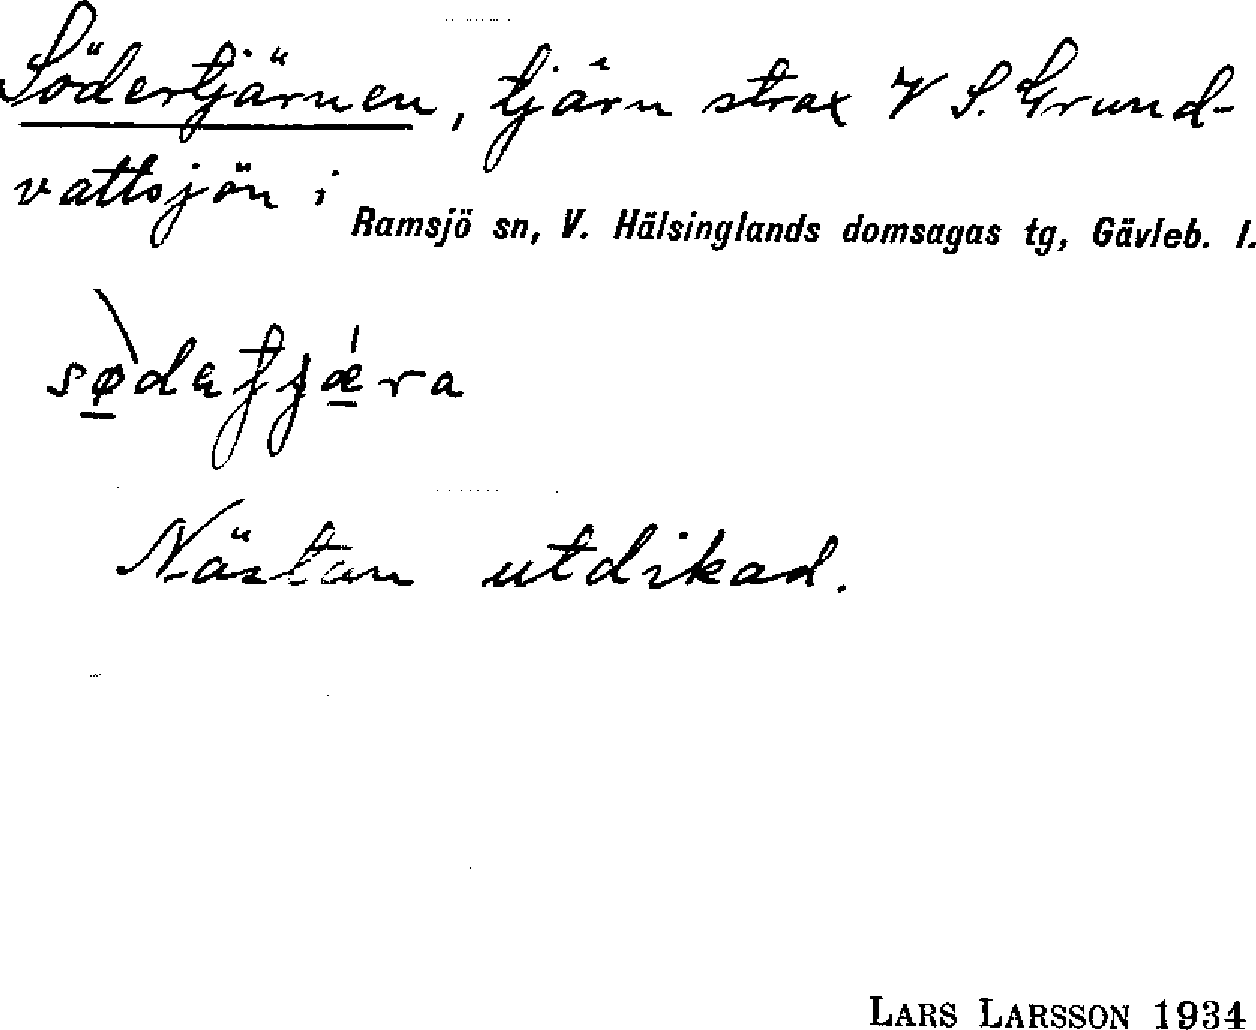 Södertjärnen, tjärn strax V S. Grund-
vattsjön i Ramsjö sn, V. Hälsinglands domsagas tg, Gävleb. l.
Nästan utdikad.
LARS LARSSON 1934